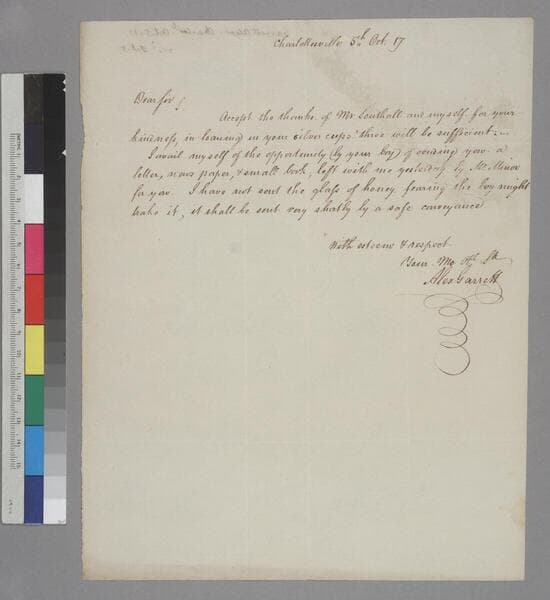 Charlottesville 5th Oct. 17
Dear sir
Accept the thanks of Mr Southall and myself for your
kindness, in loaning us your silver cups three will be sufficient.
I avail myself of the opportunity (by your boy) of sending you a
letter, news paper, & small book, left with me yesterday by Mr. Minor
for you. I have not sent the glass of honey fearing the boy might
brake it, it shall be sent very shortly by a safe conveyance
With esteem & respect
Your Mo. St.
Alex Garrett